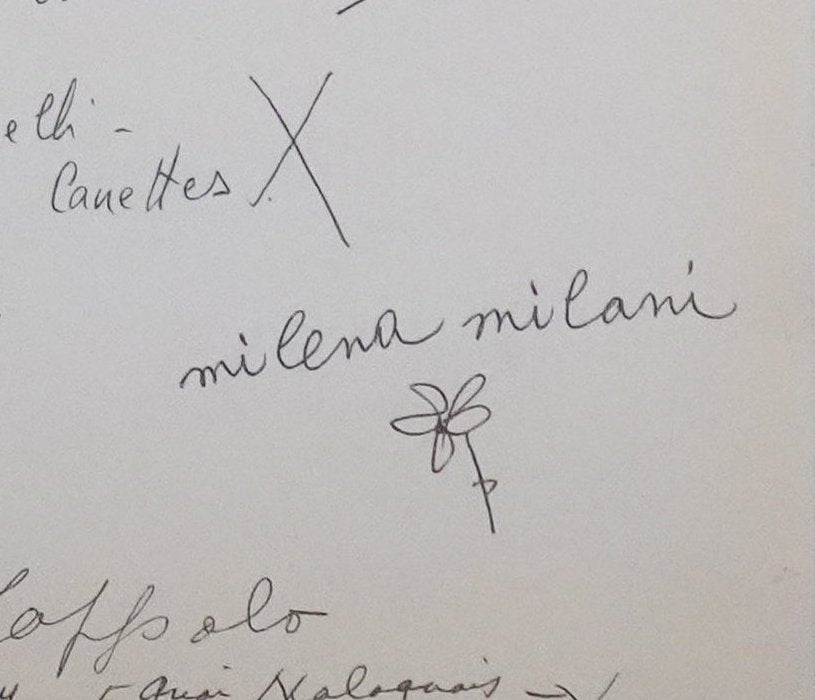 elli -
Canettes X
milena milani
Quai Malaquais